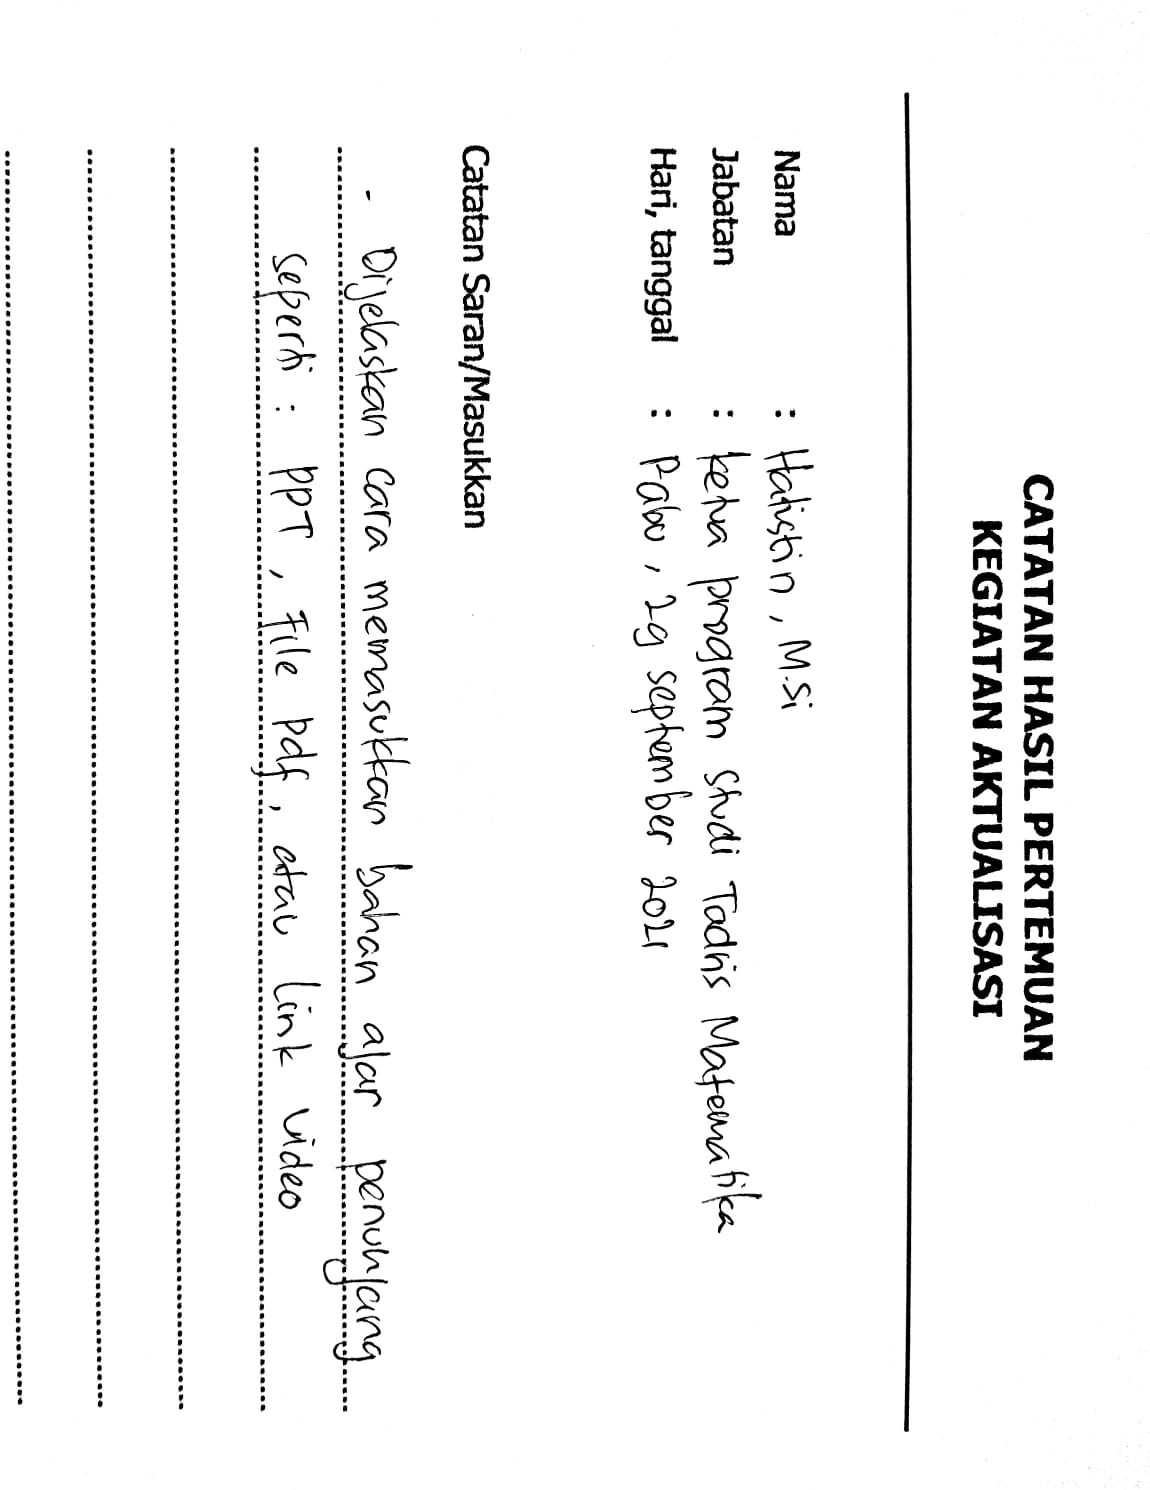 CATATAN HASIL PERTEMUAN
KEGIATAN AKTUALISASI
Nama : Halistin, M.Si
Jabatan : ketua program studi Tadris Matematika
Hari, tanggal : Rabu, 29 september 2021
Catatan Saran/Masukkan
- Dijelaskan cara memasukkan bahan ajar penunjang
seperti : PPT, File pdf, atau link video